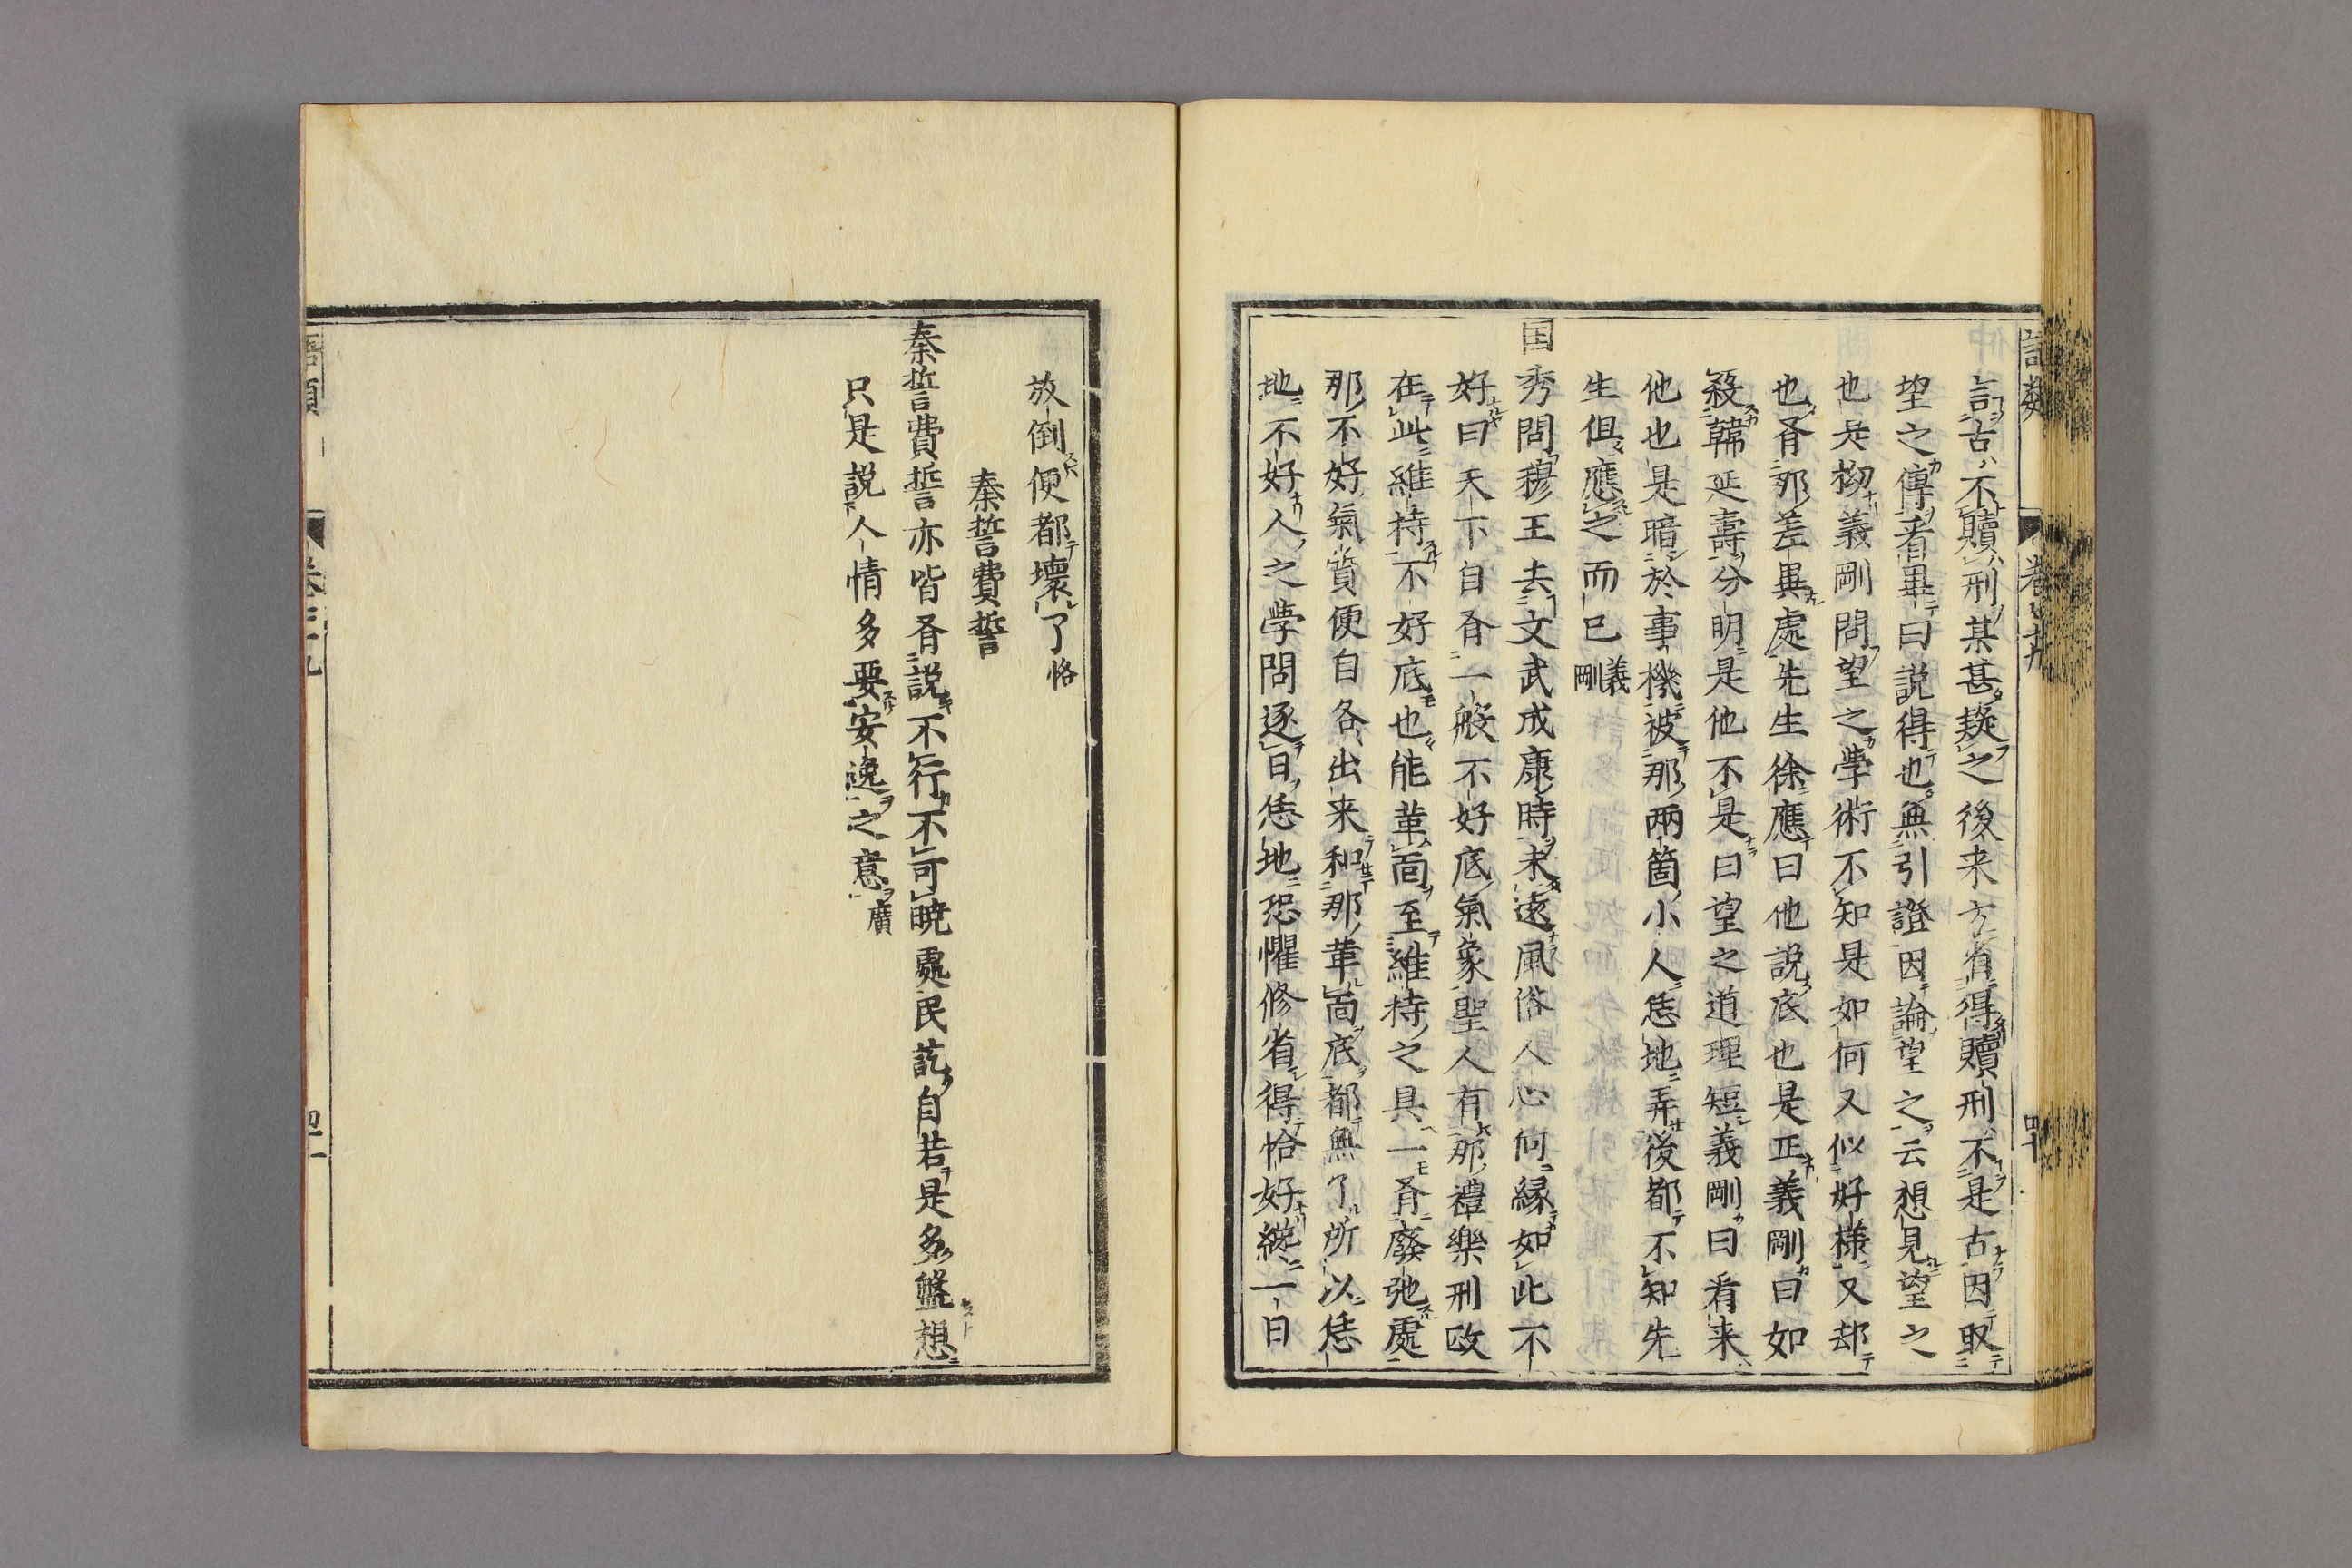 言古不贖刑某甚疑之後来方省得贖刑不是古因取
望之傳看畢曰説得也無引證因論望之云想見望之
也是拗義剛問望之學術不知是如何又似好様又却
也有那差異處先生徐應曰他説底也是正義剛曰如
殺韓延壽分明是他不是曰望之道理短義剛曰看来
他也是暗於事機被那兩箇小人恁地弄後都不知先
生但應之而已義剛
国秀問穆王去文武成康時未遠風俗人心何縁如此不
好曰天下自有一般不好底氣象聖人有那禮樂刑政
在此維持不好底也能革面至維持之具一有廢弛處
那不好氣質便自各出来和那革面底都無了所以恁
地不好人之學問逐日恁地恐懼修省得恰好纔一日
放倒便都壞了恪
秦誓費誓
秦誓費誓亦皆有説不行不可暁處民訖自若是多盤想
只是説人情多要安逸之意廣